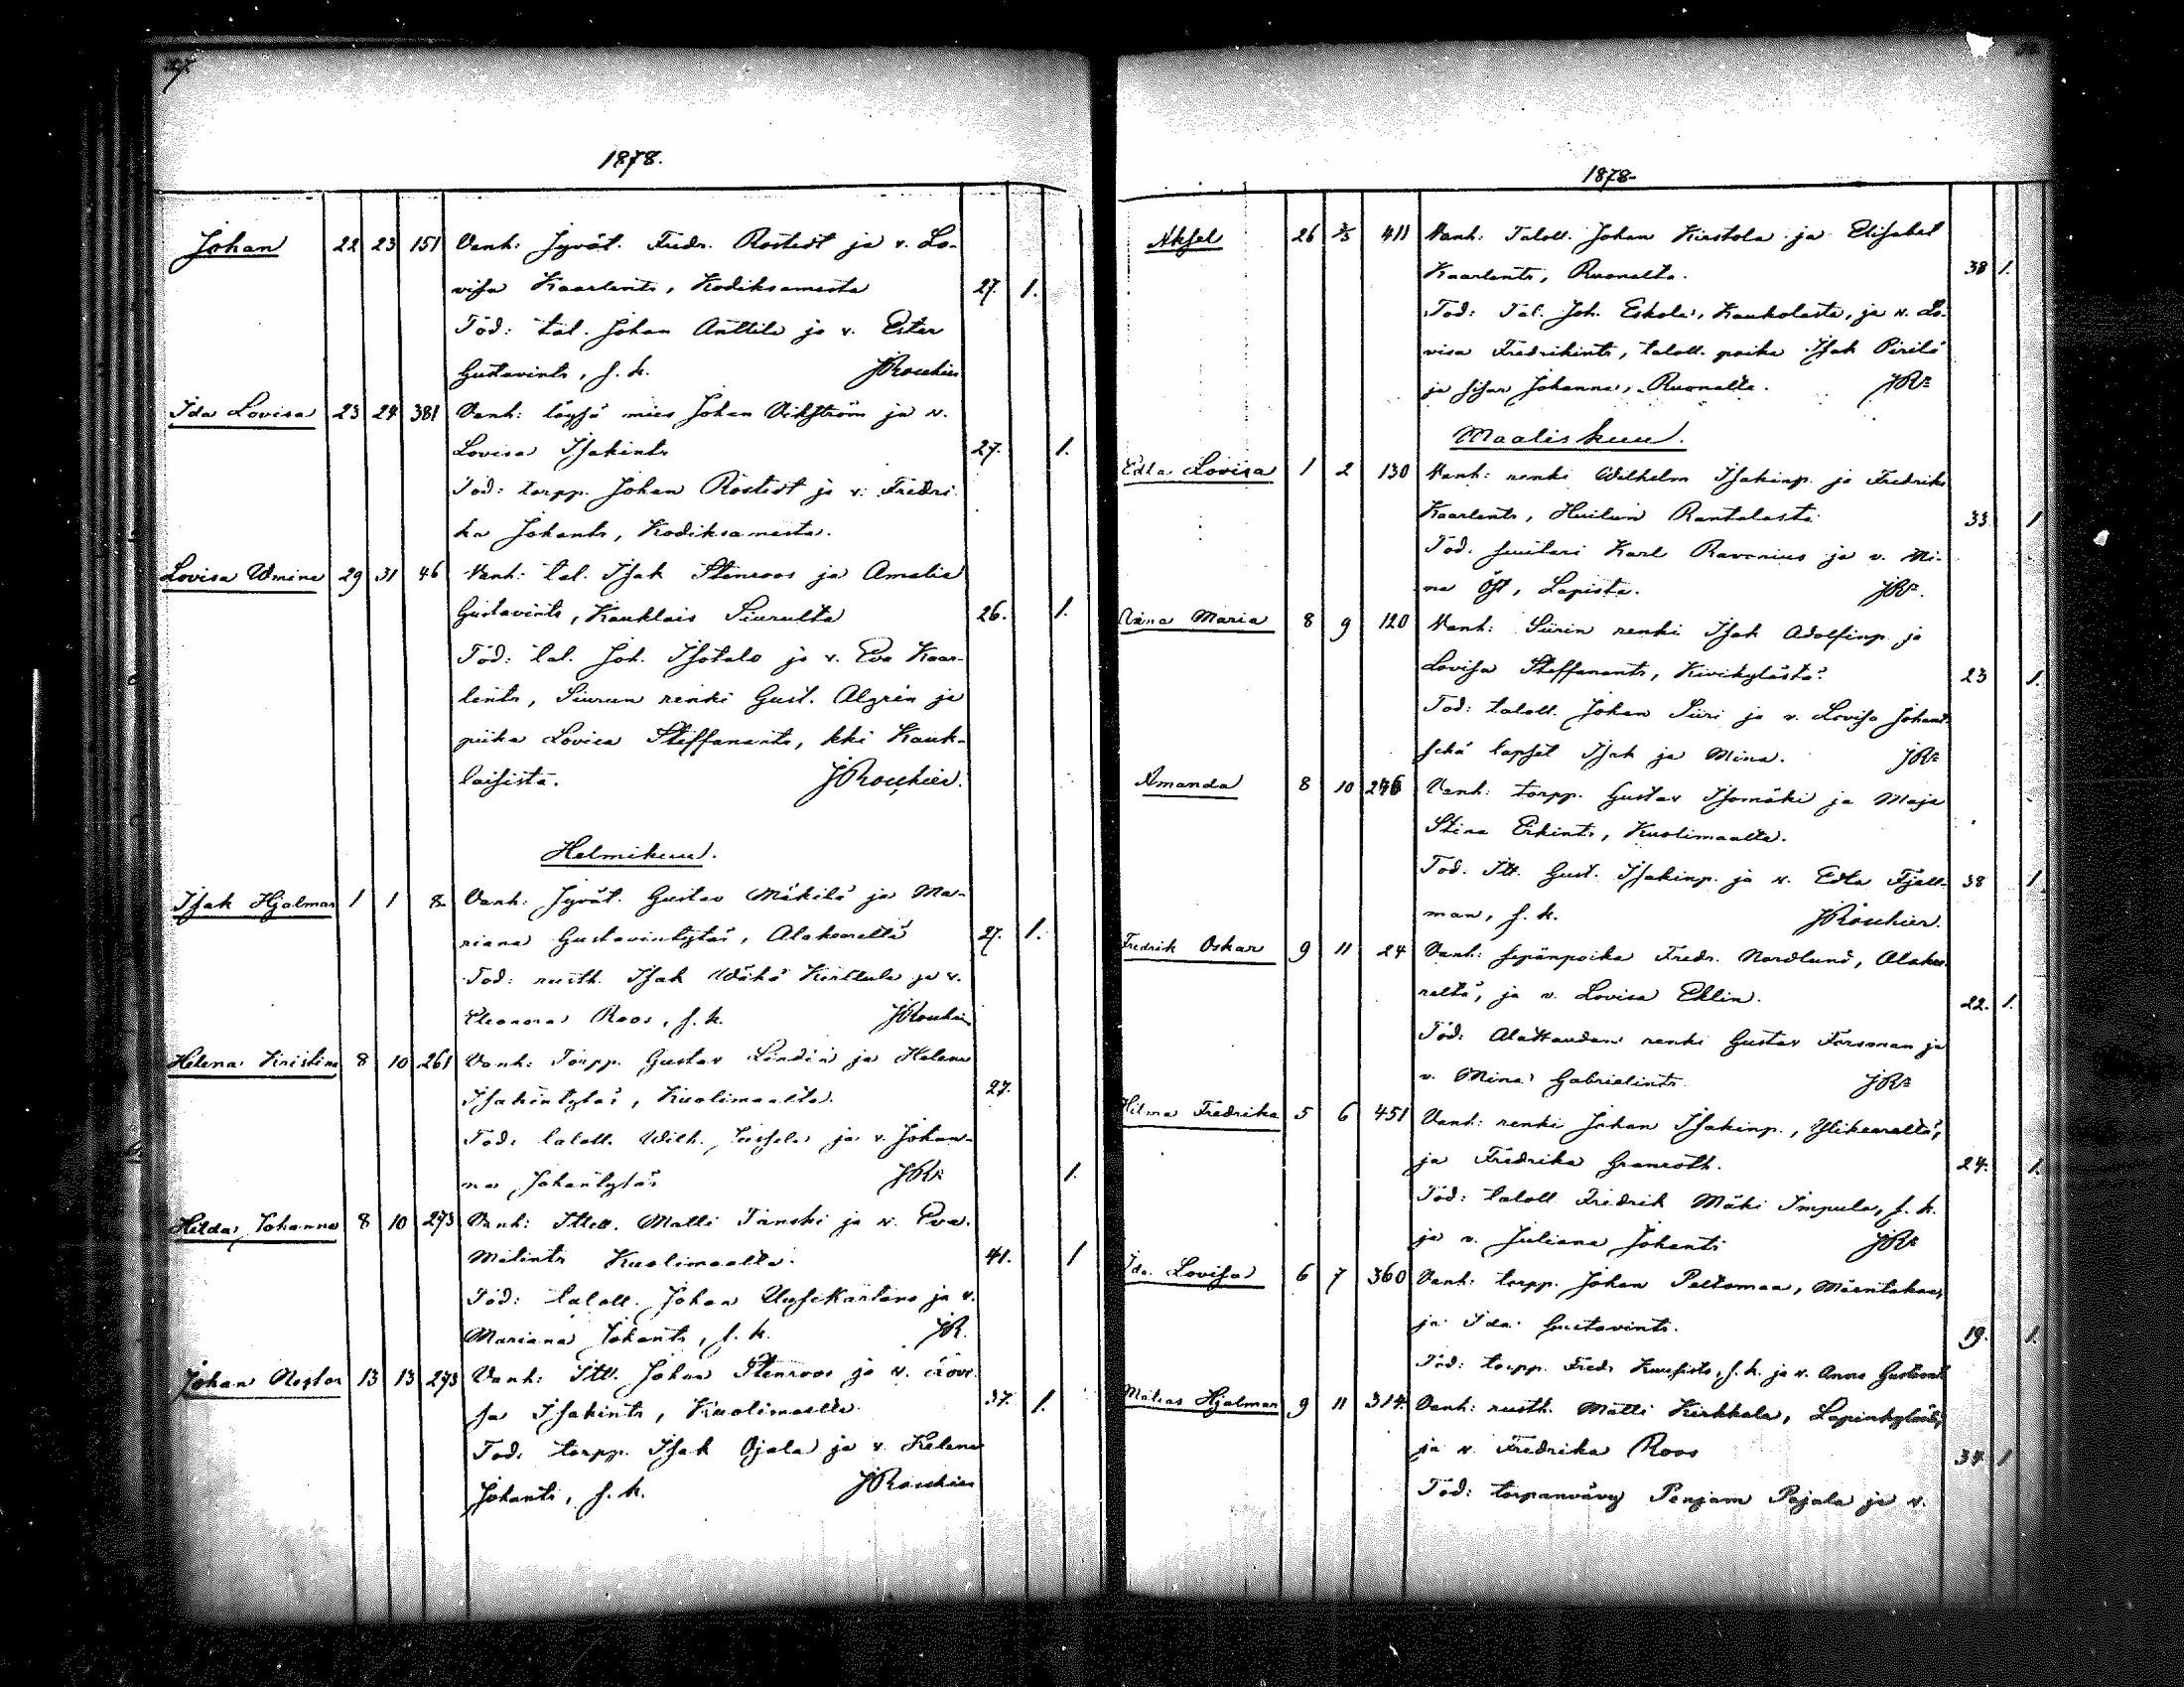 27.
1878.
Johan 22 23 151 Vanh: Jyvät. Fredr. Rostedt ja v. Lo-
visa Kaarlentr, Kodiksamesta 27. 1.
Tod: tal. Johan Anttila ja v. Ester
Gustavintr, s. k. JRoukier
Ida Lovisa 23 24 381 Vanh: löysä mies Johan Vikström ja v.
Lovisa Isakintr 27. 1.
Tod: torpp. Johan Rostedt ja v. Fredri
ka Johantr, Kodiksamesta.
Lovisa Wmina 29 31 46 Vanh: tal. Isak Stenroos ja Amalia
Gustavintr, Kauklais Siurulta 26. 1.
Tod: tal. Joh. Isotalo ja v. Eva Kaar-
lentr, Siurun renki Gust. Algrén ja
piika Lovisa Steffanantr, kki Kauk-
laisista. JRoukier.
Helmikuu.
Isak Hjalmar 1 1 8 Vanh: Jyvät. Gustav Mäkilä ja Ma-
riana Gustavintytär, Alakeereltä 27. 1.
Tod: rusth. Isak Wähä Kerttula ja v.
Eleonora Roos, s. k. JRoukier
Helena Kristina 8 10 261 Vanh: Torpp. Gustav Lindin ja Helena
Isakintytär, Kuolimaalta. 27.
Tod: taloll. Wilh. ja v. Johan-
na Johantytär JRr 1.
Hilda Johanna 8 10 273 Vanh: Ittell. Matti Tanski ja v. Eva
Matintr Kuolimaalta. 41. 1
Tod: taloll. Johan Uusikartano ja v.
Mariana Johantr, s. k. JR.
Johan Nestor 13 13 273 Vanh: Ittl. Johan Stenroos ja v. Lovi
sa Isakintr, Kuolimaalta 37. 1.
Tod. torpp. Isak Ojala ja v. Helena
Johantr, s. k. JRoukier
1878-
Aksel 26 2/3 411 Vanh: Taloll. Johan Kirstola ja Elisabet
Kaarlentr, Ruonalta. 38 1.
Tod: Tal. Joh. Eskola, Kaukolasta, ja v. Lo-
visa Fredrikintr, taloll. poika Isak Pirilä
ja sisar Johanna, Ruonalta. JRr
Maaliskuu.
Edla Lovisa 1 2 130 Vanh: renki Wilhelm Isakinp. ja Fredrika
Kaarlentr, Huilun Rantalasta 33 1
Tod. suutari Karl Ravenius ja v. Mi-
na Öst, Lapista. JRr.
Maria 8 9 120 Vanh: Siirin renki Isak Adolfinp. ja
Lovisa Steffanantr, Kivikylästä. 23 1.
Tod: taloll. Johan Siiri ja v. Lovisa Johant.
sekä lapset Isak ja Mina. JRr
Amanda 8 10 276 Vanh: torpp. Gustav Isomäki ja Maja
Stina Erkintr, Kuolimaalta.
Tod. Itt. Gust. Isakinp. ja v. Edla Fjäll- 38 1
man, s. k. JRoukier.
Fredrik Oskar 9 11 24 Vanh: sepänpoika Fredr. Nordlund, Alakee-
reltä, ja v. Lovisa Eklin. 22. 1.
Tod: Alattaudan renki Gustav Forsman ja
v. Mina Gabrielintr JRr
Hilma Fredrika 5 6 451 Vanh: renki Johan Isakinp., Ylikeereltä,
ja Fredrika Granroth. 24. 1.
Tod: taloll Fredrik Mäki Impula, s. k.
ja v. Juliana Johantr JRr
Ida Lovisa 6 7 360 Vanh: torpp. Johan Peltomaa, Mäentakaa,
ja Ida Gustavintr. 19. 1.
Tod: torpp. Fredr Kuusisto, s. k. ja v. Anna Gustavint
Matias Hjalmar 9 11 314. Vanh: rusth. Matti Kirkkala, Lapinkylästä,
ja v. Fredrika Roos 34 1
Tod: torpanvävy Penjam Pajala ja v.